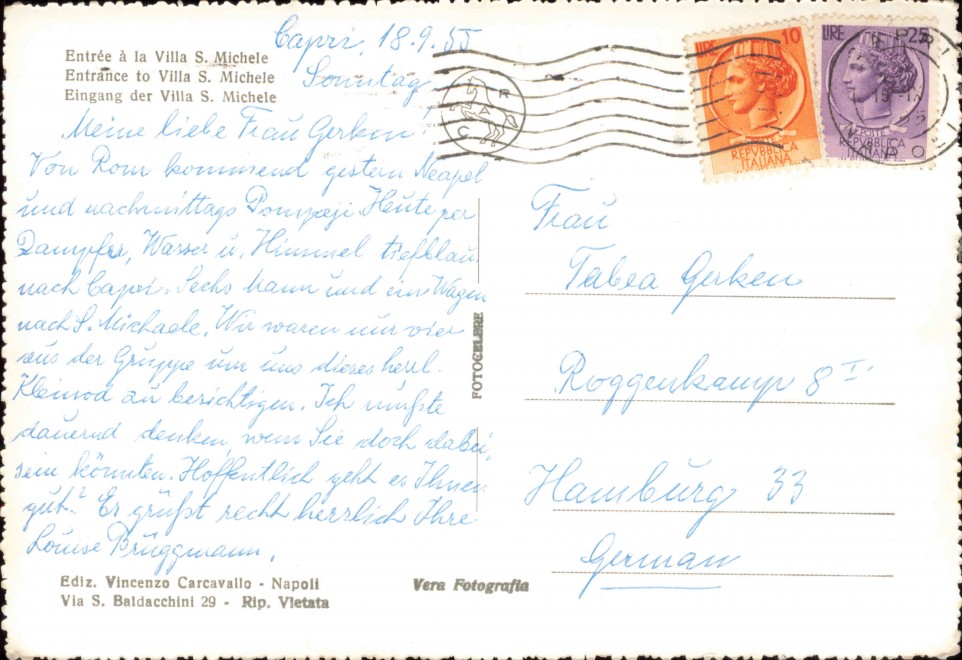 Entrée à la Villa S. Michele
Entrance to Villa S. Michele
Eingang der Villa S. Michele
Capri, 18.9.55
Sonntag
Meine liebe Frau Gerken!
Von Rom kommend gestern Neapel
und nachmittags Pompeji. Heute per
Dampfer, Wasser u. Himmel tiefblau
nach Capri. Sechs Mann und ein Wagen
nach S. Michaele. Wir waren nur vier
aus der Gruppe um uns dieses herrl.
Kleinod zu besichtigen. Ich mußte
dauernd denken, wenn Sie doch dabei
sein könnten. Hoffentlich geht es Ihnen
gut? Es grüßt recht herzlich Ihre
Louise Brüggmann.
Ediz. Vincenzo Carcavallo - Napoli
Via S. Baldacchini 29 - Rip. Vietata
Vera Fotografia
FOTOCELERE
LIRE 10
POSTE
REPVBBLICA
ITALIANA
LIRE 25
POSTE
REPVBBLICA
ITALIANA
Frau
Tabea Gerken
Roggenkamp 8 II
Hamburg 33
German